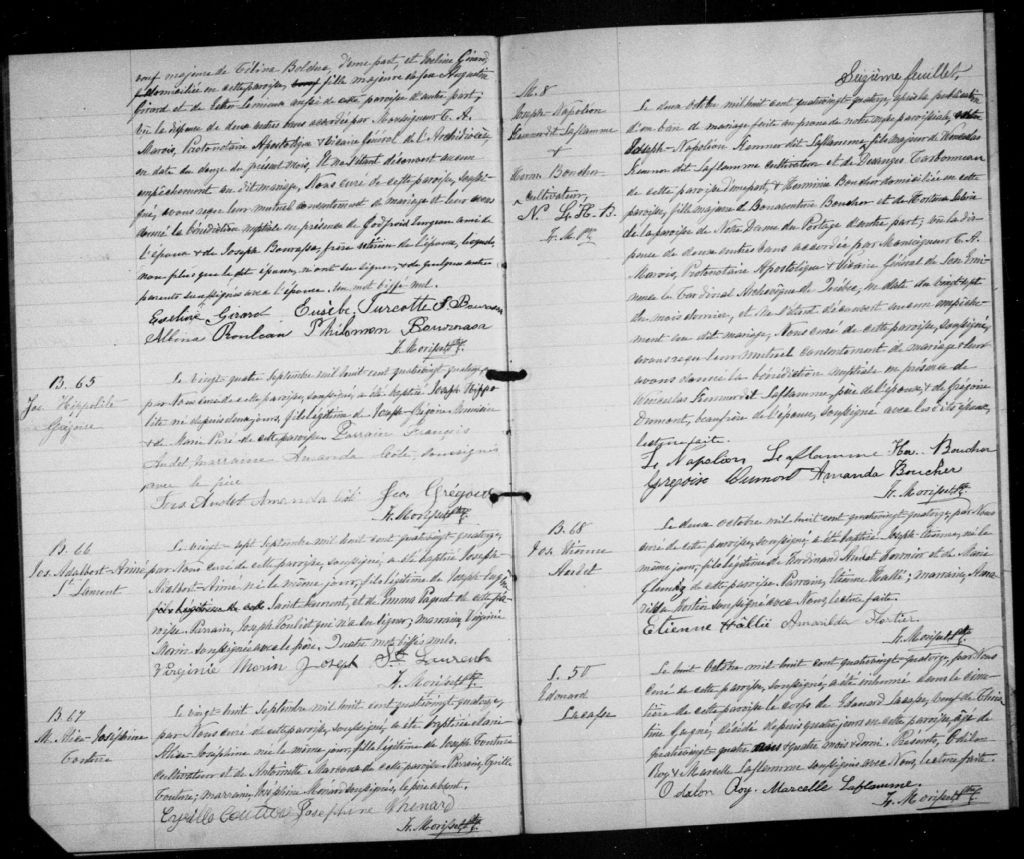 veuf majeur de Célina Bolduc, d'une part, et Eveline Girard,
domiciliée en cette paroisse, fille majeure de feu Augustin
Girard et de Esther Lemieux aussi de cette paroisse d'autre part;
vu la dispense de deux autres bans accordée par Monseigneur C. A.
Marois, Protonotaire Apostolique & Vicaire Général de l'Archidiocèse,
en date du douze du présent mois, Et ne s'étant découvert aucun
empêchement au dit mariage, Nous curé de cette paroisse, soussi-
gné, avons reçu leur mutuel consentement de mariage et leur avons
donné la bénédiction nuptiale en présence de Godfroid ami de
l'époux & de Joseph Bourassa, frère de l'épouse, lesquels
non plus que le dit époux, n'ont su signer, & de quelques autres
parents soussignés avec l'épouse. Un mot biffé nul.
Eveline Girard Eusèbe Turcotte J Bourassa
Albina Rouleau Philomon Bourrassa
H. Morisset Ptre
B. 65
Jos. Hippolite
Grégoire
Le vingt quatre Septembre mil huit cent quatrevingt quatorze,
par Nous curé de cette paroisse, soussigné, a été baptisé Joseph Hippo-
lite né depuis deux jours, fils légitime de Joseph Grégoire
& de Marie Paré de cette paroisse Parrain François
Audet, marraine Amanda Coté, soussignés
avec le père
Frs Audet Amanda Coté Jos Grégoire
H. Morisset Ptre
B. 66
Jos. Adalbert-Aimé
St Laurent
Le vingt-sept Septembre mil huit cent quatrevingt quatorze,
par Nous curé de cette paroisse, soussigné, a été baptisé Joseph-
Adalbert-Aimé né le même jour, fils légitime de Joseph
Saint Laurent, et de Emma Paquet de cette pa-
roisse. Parrain, Joseph Pouliot qui n'a su signer, marraine Virginie
Morin soussignée avec le père. Quatre mots biffés nuls.
Virginie Morin Joseph St Laurent
H. Morisset Ptre
B. 67
M. Alice-Joséphine
Couture
Le vingt huit Septembre mil huit cent quatrevingt quatorze,
par Nous curé de cette paroisse, soussigné, a été baptisée Marie
Alice-Joséphine née le même jour, fille légitime de Joseph Couture
cultivateur et de Antoinette Marcoux de cette paroisse Parrain, Cyrille
Couture; marraine, Joséphine Ménard soussignés, le père absent.
Cyrille Couture Josephine Menard
H. Morisset Ptre
Sixième feuillet.
M. 8
Joseph Napoléon
Kemner dit Laflamme
+
Herm. Boucher
Cultivateur
N. L. H. B.
H. M. Ptre
Le deux Octobre mil huit cent quatrevingt quatorze, après la publication
d'un ban de mariage faite au prône de notre messe paroissiale, entre
Joseph-Napoléon Kemner dit Laflamme, fils majeur de Wenceslas
Kemner dit Laflamme cultivateur et de Desanges Carbonneau
de cette paroisse d'une part, & Herminia Boucher domiciliée en cette
paroisse, fille majeure de Bonaventure Boucher et de Hortense
de la paroisse de Notre Dame du Portage d'autre part; vu la dis-
pense de deux autres bans accordée par Monseigneur C. A.
Marois, Protonotaire Apostolique & Vicaire Général de Son Emi-
nence le Cardinal Archevêque de Québec, en date du vingt-sept
du mois dernier, et ne s'étant découvert aucun empêche-
ment au dit mariage, Nous curé de cette paroisse, soussigné,
avons reçu leur mutuel consentement de mariage & leur
avons donné la bénédiction nuptiale en présence de
Wenceslas Kemner dit Laflamme, père de l'époux, & de Grégoire
Dumont, beaufrère de l'épouse, soussigné avec les dits époux,
lecture faite.
Js Napoléon Laflamme Her. Boucher
Gregoire Dumont Amanda Boucher
H. Morisset Ptre
B. 68
Jos. Etienne
Herdet
Le deux octobre mil huit cent quatrevingt quatorze, par Nous
curé de cette paroisse, soussigné, a été baptisé Joseph-Etienne, né le
même jour, fils légitime de Ferdinand et de Marie
de cette paroisse. Parrain, Etienne Hallé; marraine, Ama-
rilda Fortier soussignés avec Nous, lecture faite.
Etienne Hallé Amarilda Fortier.
H. Morisset Ptre
S. 50
Edouard
Lacasse
Le huit Octobre mil huit cent quatrevingt quatorze, par Nous
curé de cette paroisse, soussigné, a été inhumé dans le cime-
tière de cette paroisse le corps de Edouard Lacasse, veuf de
Gagné, décédé depuis quatre jours en cette paroisse, âgé de
quatrevingt quatre ans & quatre mois & demi. Présents, Odilon
Roy & Marcelle Laflamme soussignés avec Nous, lecture faite.
Odalon Roy. Marcelle Laflamme.
H. Morisset Ptre